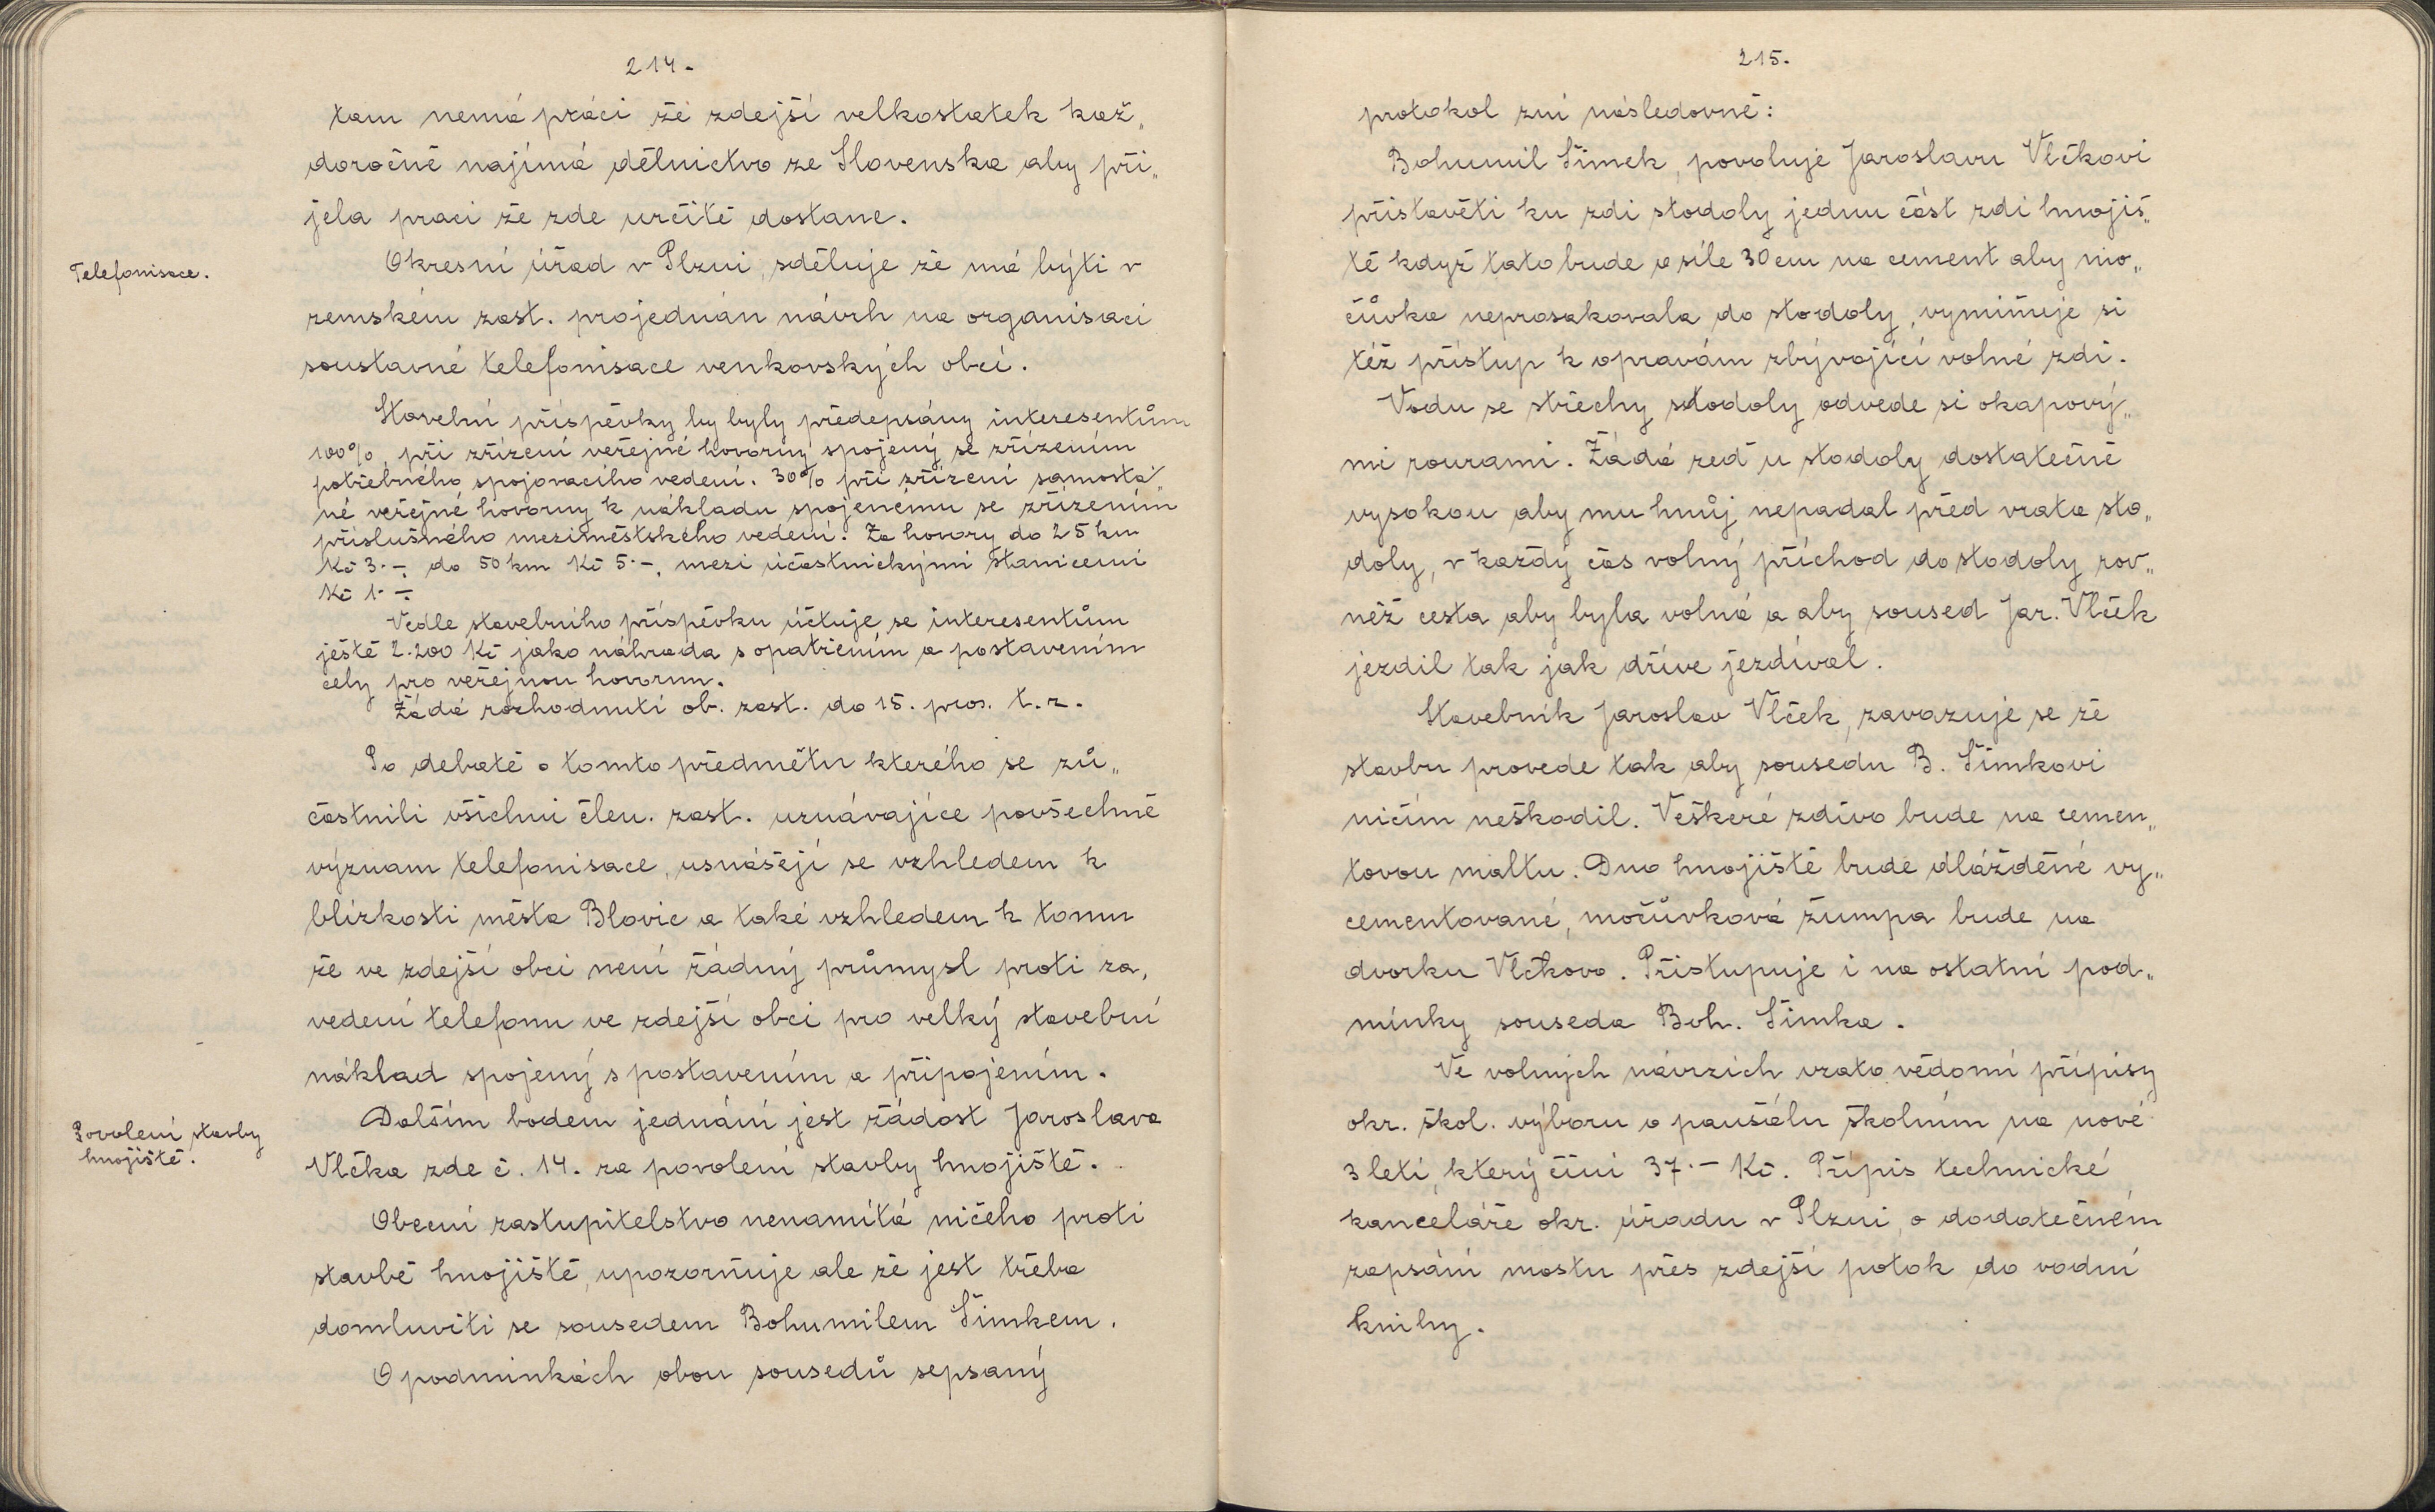 214.
tam nemá práci že zdejší velkostatek kaž„
doročně najímá dělnictvo ze Slovenska aby při„
jela praci že zde určitě dostane.
Telefonisace.
Okresní úřad v Plzni, sděluje že má býti v
zemském zast. projednán návrh na organisaci
soustavné telefonisace venkovských obcí.
Stavební příspěvky by byly předepsány interesentům
100%, při zřízení veřejné hovorny spojený se zřízením
potřebného spojovacího vedení. 30% při zřízení samosta„
né veřejné hovorny k nákladu spojenému se zřízením
příslušného meziměstského vedení. Za hovory do 25 km
Kč 3.–, do 50 km Kč 5.–, mezi účastnickými stanicemi
Kč 1.–.
Vedle stavebního příspěvku účtuje se interesentům
ještě 2.200 Kč jako náhrada s opatřením a postavením
cely pro veřejnou hovornu.
Žádá rozhodnutí ob. zast. do 15. pros. t.r.
Po debatě o tomto předmětu kterého se zú„
častnili všichni člen. zast. uznávajíce povšechně
význam telefonisace, usnášejí se vzhledem k
blízkosti města Blovic a také vzhledem k tomu
že ve zdejší obci není žádný průmysl proti za„
vedení telefonu ve zdejší obci pro velký stavební
náklad spojený s postavením a připojením.
Povolení stavby
hnojiště.
Dalším bodem jednání jest žádost Jaroslava
Vlčka zde č. 14. za povolení stavby hnojiště.
Obecní zastupitelstvo nenamítá ničeho proti
stavbě hnojiště, upozorňuje ale že jest třeba
domluviti se sousedem Bohumilem Šimkem.
O podmínkách obou sousedů sepsaný
215.
protokol zní následovně:
Bohumil Šimek, povoluje Jaroslavu Vlčkovi
přistavěti ku zdi stodoly jednu část zdi hnojiš„
tě když tato bude o síle 30 cm na cement aby mo„
čůvka neprosakovala do stodoly, vymiňuje si
též přístup k opravám zbývající volné zdi.
Vodu se střechy stodoly odvede si okapový„
mi rourami. Žádá zeď u stodoly dostatečně
vysokou aby mu hnůj nepadal před vrata sto„
doly, v každý čas volný příchod do stodoly rov„
něž cesta aby byla volná a aby soused Jar. Vlček
jezdil tak jak dříve jezdíval.
Stavebník Jaroslav Vlček, zavazuje se že
stavbu provede tak aby sousedu B. Šimkovi
ničím neškodil. Veškeré zdivo bude na cemen„
tovou maltu. Dno hnojiště bude dlážděné vy„
cementované, močůvková žumpa bude na
dvorku Vlčkovo. Přistupuje i na ostatní pod„
mínky souseda Boh. Šimka.
Ve volných návrzích vzato vědomí přípisy
okr. škol. výboru o paušálu školním na nové
3 letí, který činí 37.– Kč. Přípis technické
kanceláře okr. úřadu v Plzni, o dodatečném
zapsání mostu přes zdejší potok do vodní
knihy.